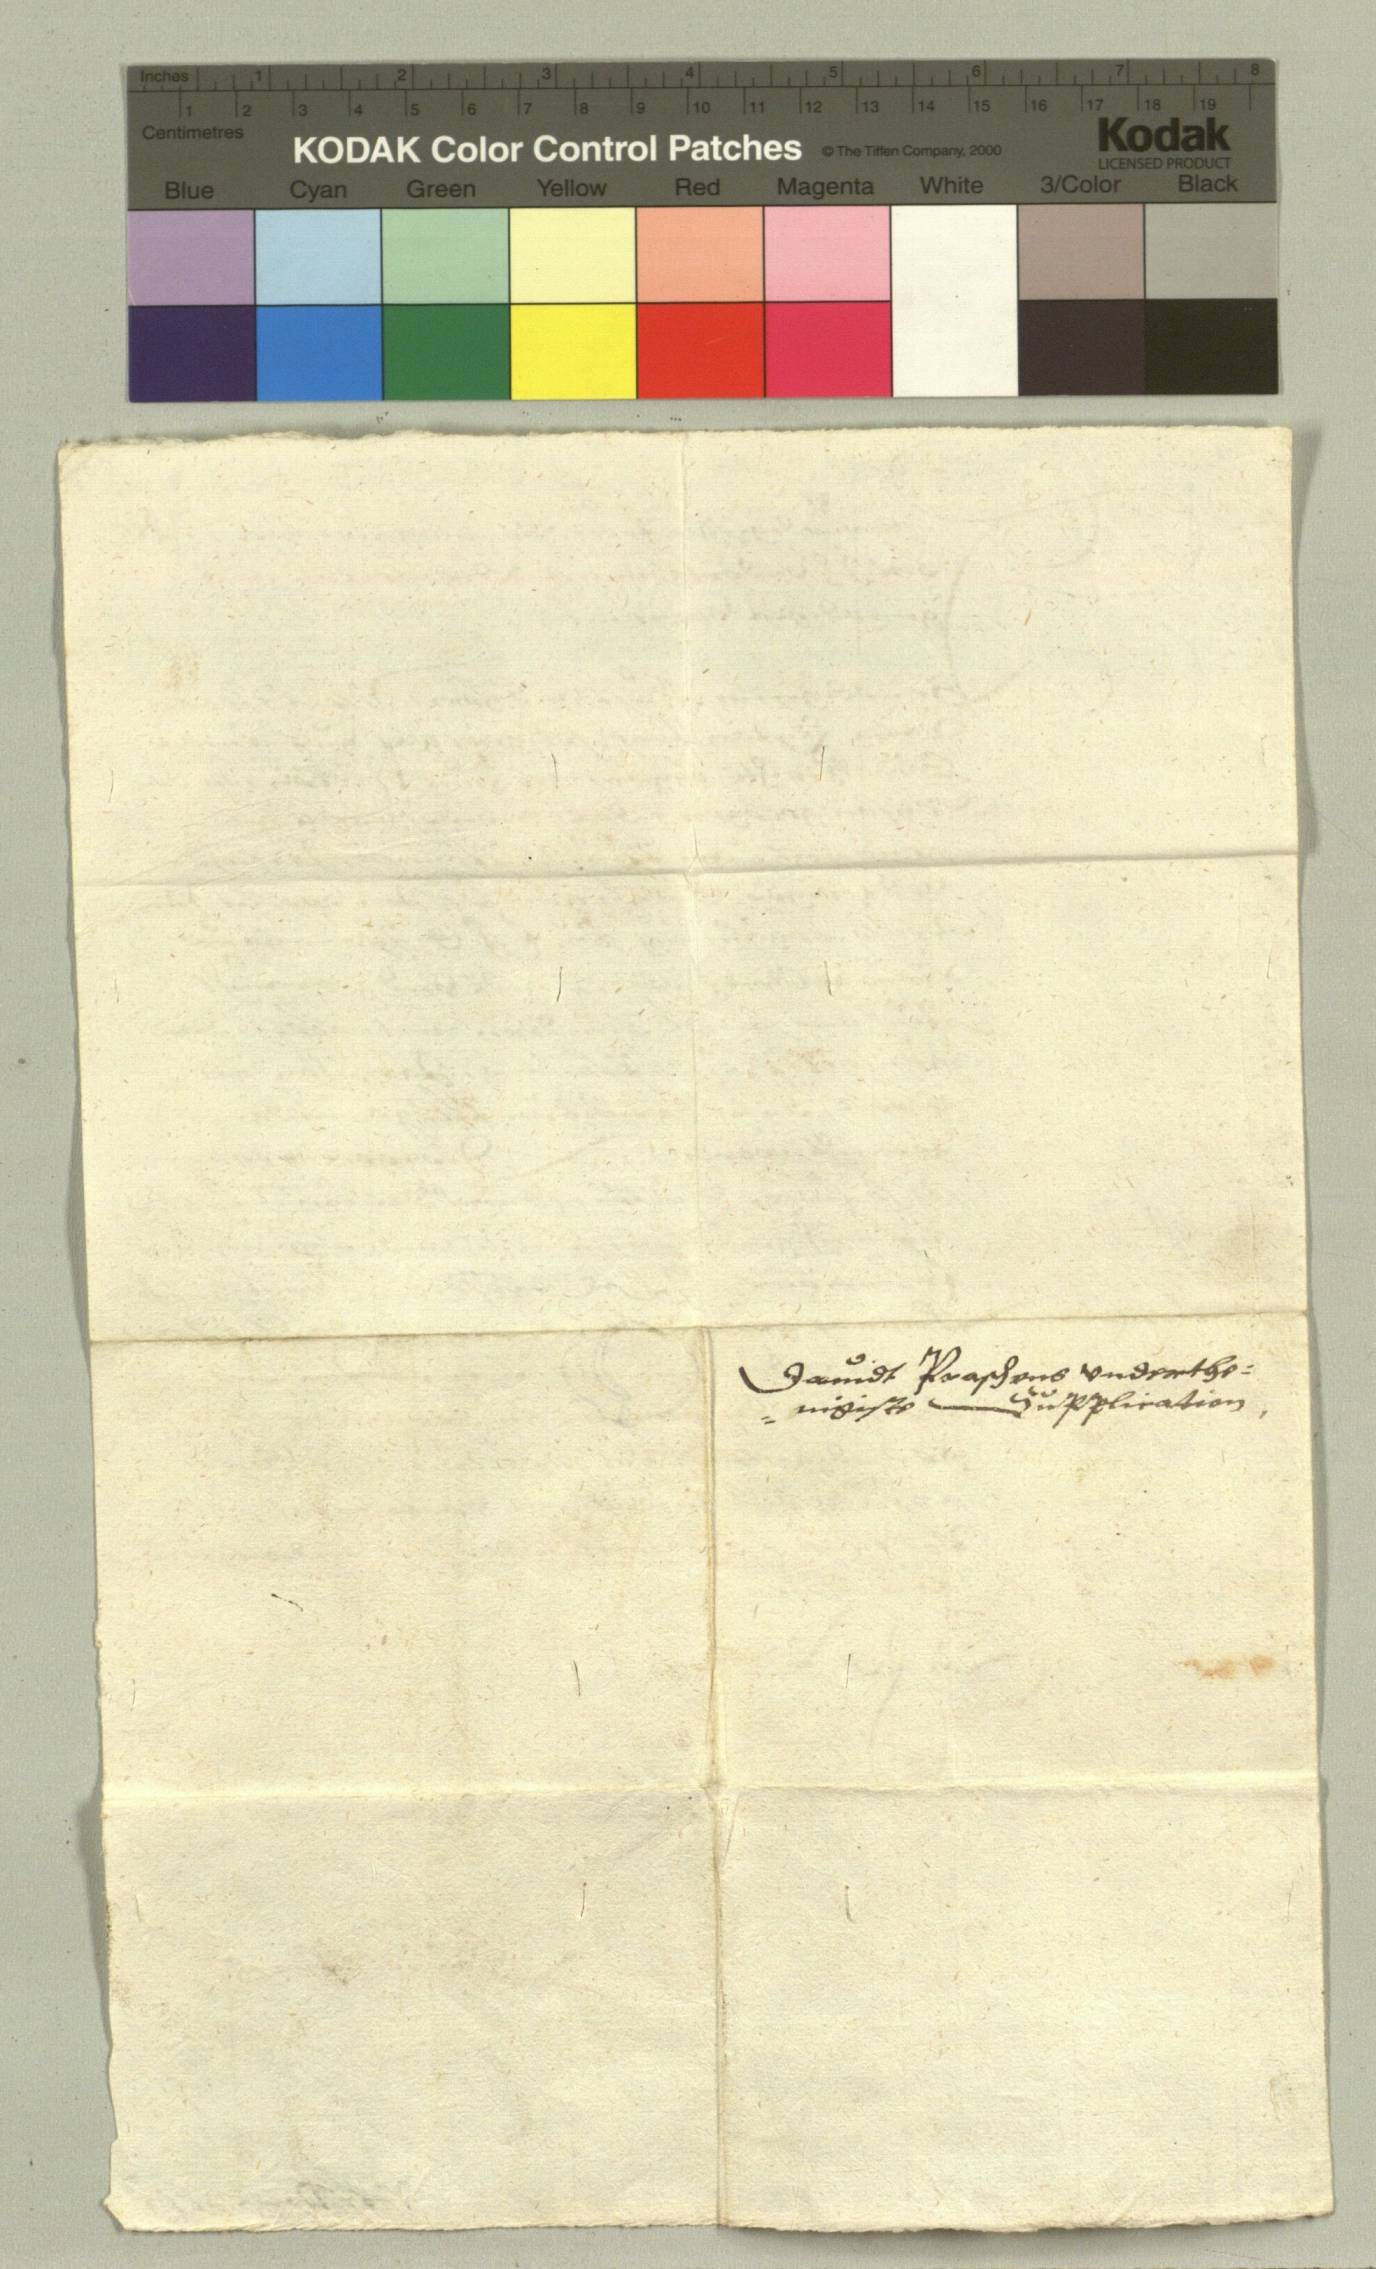 Inches 1 2 3 4 5 6 7 8
1 2 3 4 5 6 7 8 9 10 11 12 13 14 15 16 17 18 19
Centimetres
KODAK Color Control Patches © The Tiffen Company, 2000 Kodak
LICENSED PRODUCT
Blue Cyan Green Yellow Red Magenta White 3/Color Black
Dauidt Praschens vnderthe=
=nigiste Supplication,